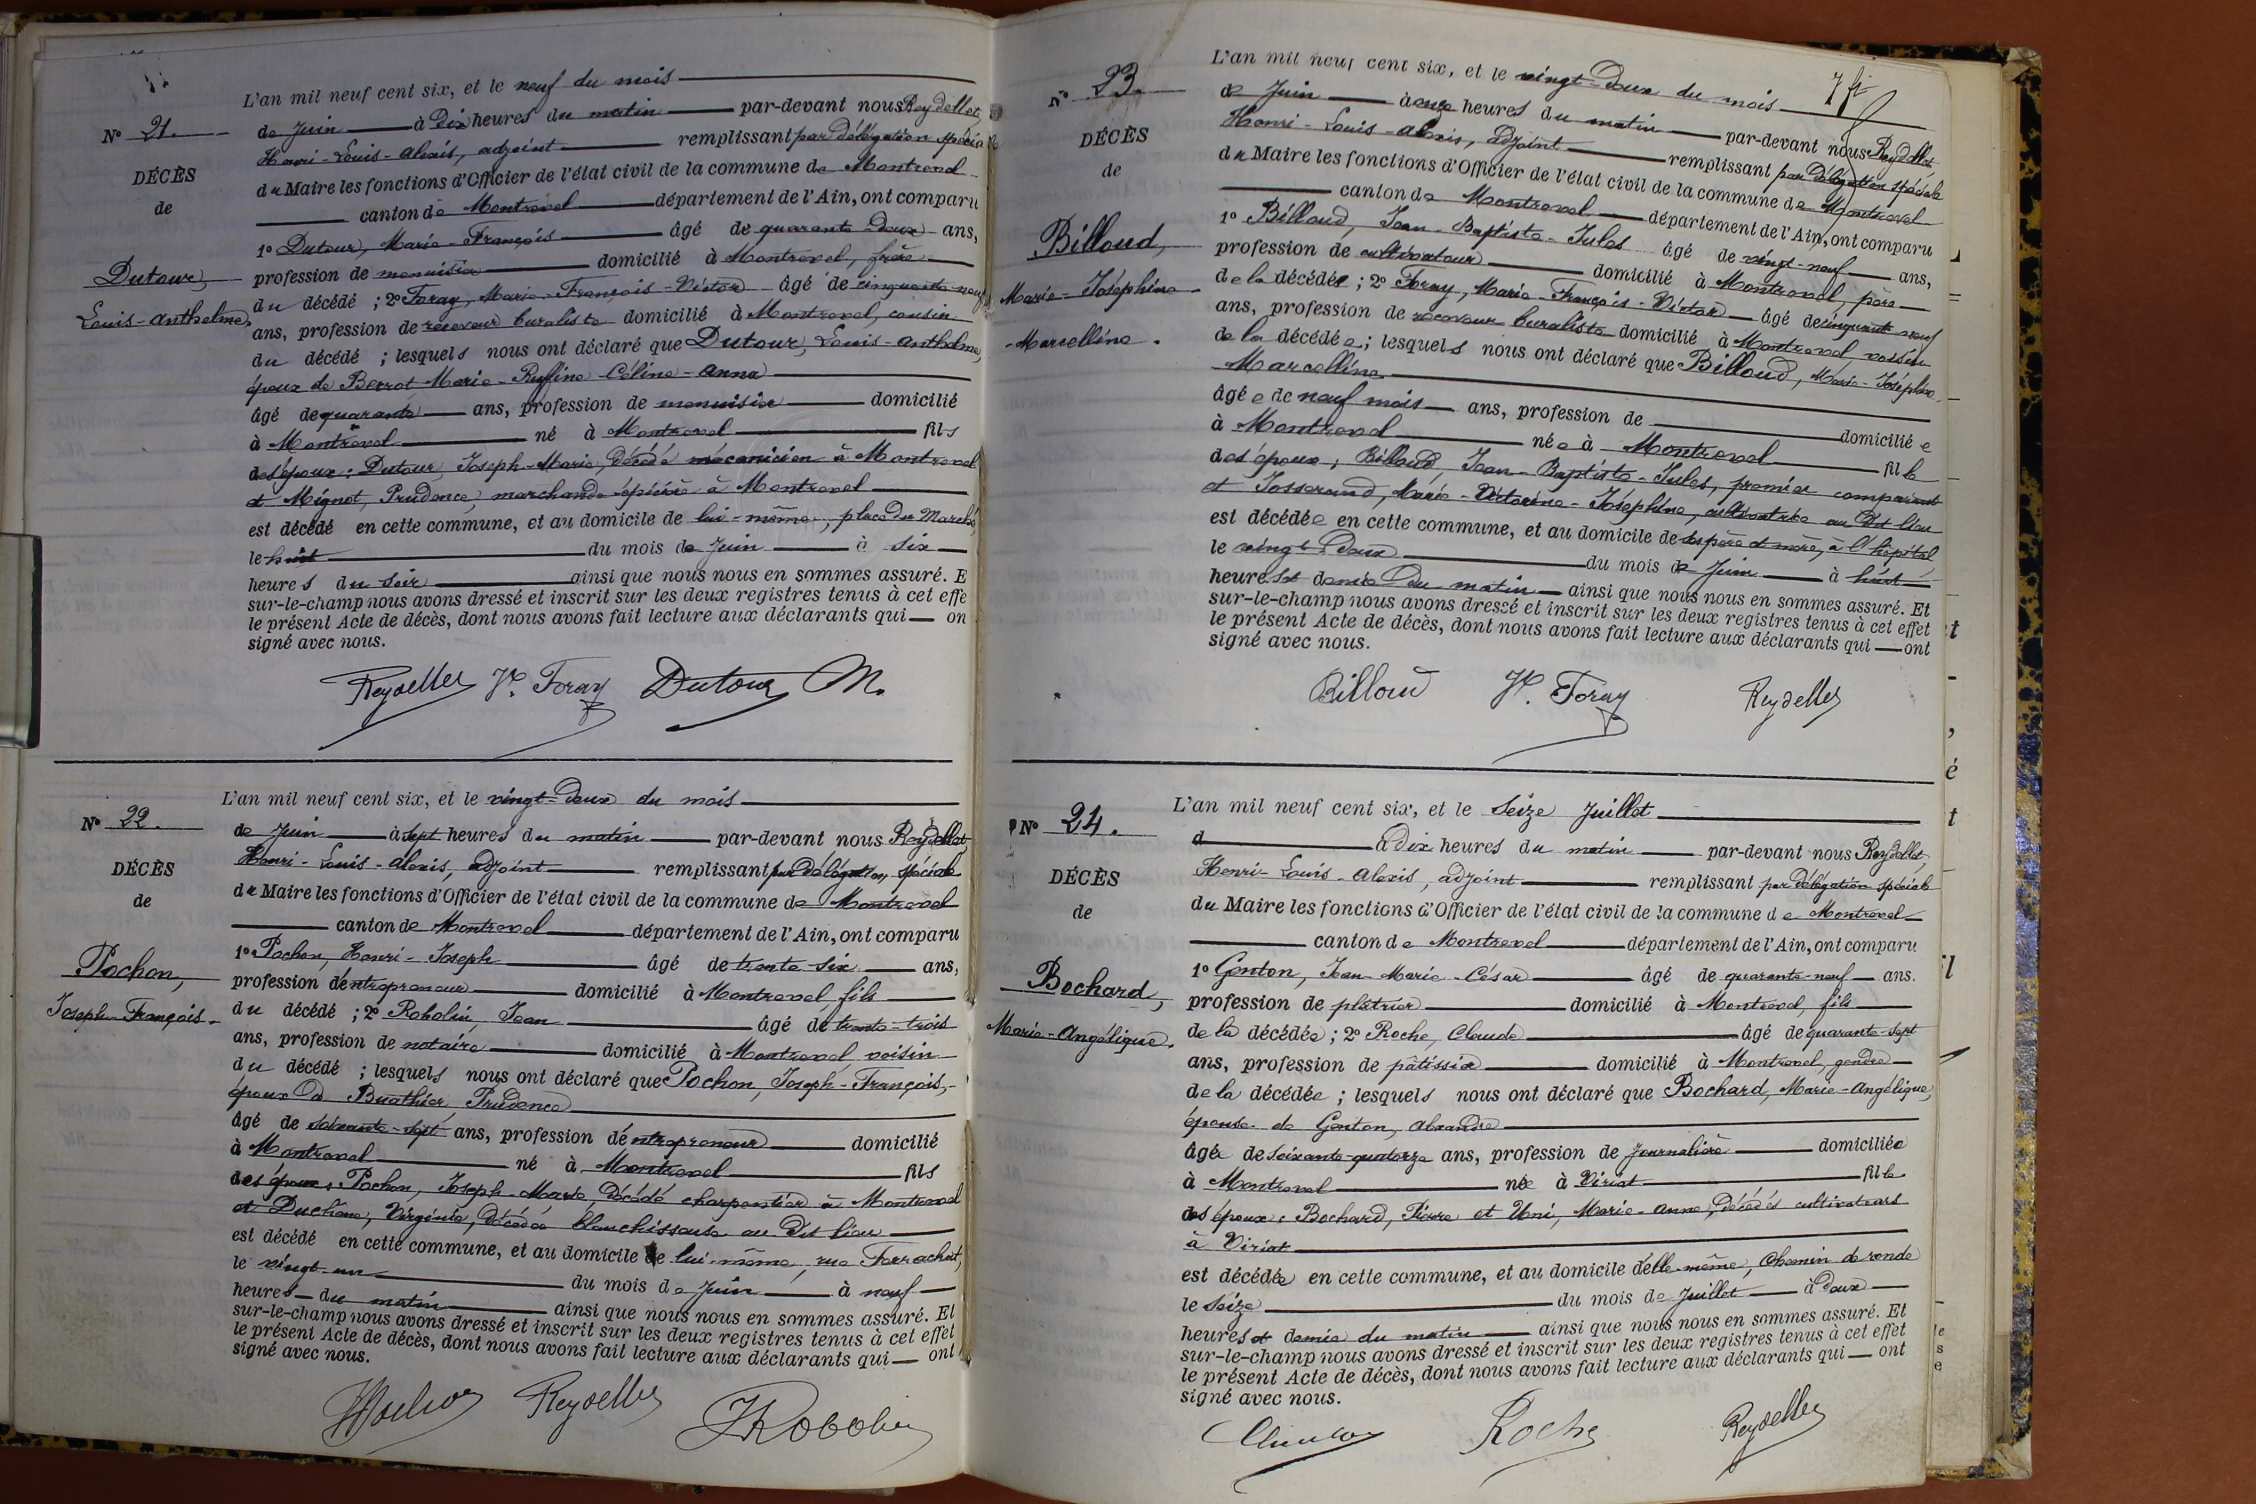 L'an mil neuf cent six, et le neuf du mois
Nº 21.
de Juin à Dix heures du matin par-devant nous Reydellet,
Henri-Louis-Alexis, adjoint remplissant par délégation spéciale
DÉCÈS
du Maire les fonctions d'Officier de l'état civil de la commune de Montrevel
de
canton de Montrevel département de l'Ain, ont comparu
1º Dutour, Marie-François âgé de quarante-deux ans,
Dutour,
profession de menuisier domicilié à Montrevel, frère
Louis-Anthelme.
du décédé ; 2º Foray, Marie-François-Victor âgé de cinquante-neuf
ans, profession de receveur buraliste domicilié à Montrevel, cousin
du décédé ; lesquels nous ont déclaré que Dutour, Louis-Anthelme,
époux de Berrot Marie-Ruffine-Céline-Anna
âgé de quarante ans, profession de menuisier domicilié
à Montrevel né à Montrevel fils
des époux : Dutour, Joseph-Marie, décédé mécanicien à Montrevel
et Mignot, Prudence, marchande épicière à Montrevel
est décédé en cette commune, et au domicile de lui-même, place du Marché,
le huit du mois de Juin à six
heures du soir ainsi que nous nous en sommes assuré. E
sur-le-champ nous avons dressé et inscrit sur les deux registres tenus à cet effe
le présent Acte de décès, dont nous avons fait lecture aux déclarants qui on
signé avec nous.
Reydellet Vr. Foray Dutour M.
L'an mil neuf cent six, et le vingt-deux du mois
Nº 22.
de Juin à sept heures du matin par-devant nous Reydellet,
Henri-Louis-Alexis, adjoint remplissant par délégation spéciale
DÉCÈS
du Maire les fonctions d'Officier de l'état civil de la commune de Montrevel
de
canton de Montrevel département de l'Ain, ont comparu
1º Pochon, Henri-Joseph âgé de trente-six ans,
Pochon,
profession d'entrepreneur domicilié à Montrevel, fils
Joseph-François.
du décédé ; 2º Robolin, Jean âgé de trente-trois
ans, profession de notaire domicilié à Montrevel, voisin
du décédé ; lesquels nous ont déclaré que Pochon, Joseph-François,
époux de Buathier, Prudence
âgé de soixante-sept ans, profession d'entrepreneur domicilié
à Montrevel né à Montrevel fils
des époux : Pochon, Joseph-Marie, décédé charpentier à Montrevel
et Duchêne, Virginie, décédée blanchisseuse au dit lieu
est décédé en cette commune, et au domicile de lui-même, rue Ferrachat,
le vingt-un du mois de Juin à neuf
heures du matin ainsi que nous nous en sommes assuré. Et
sur-le-champ nous avons dressé et inscrit sur les deux registres tenus à cet effet
le présent Acte de décès, dont nous avons fait lecture aux déclarants qui ont
signé avec nous.
HPochon Reydellet JRobolin
L'an mil neuf cent six, et le vingt-deux du mois
Nº 23.
de Juin à onze heures du matin par-devant nous Reydellet,
Henri-Louis-Alexis, adjoint remplissant par délégation spéciale
DÉCÈS
du Maire les fonctions d'Officier de l'état civil de la commune de Montrevel
de
canton de Montrevel département de l'Ain, ont comparu
1º Billoud, Jean-Baptiste-Jules âgé de vingt-neuf ans,
Billoud,
profession de cultivateur domicilié à Montrevel, père
Marie-Joséphine
de la décédée ; 2º Foray, Marie-François-Victor âgé de cinquante-neuf
ans, profession de receveur buraliste domicilié à Montrevel, voisin
-Marcelline.
de la décédée ; lesquels nous ont déclaré que Billoud, Marie-Joséphine-
Marcelline
âgée de neuf mois ans, profession de domiciliée
à Montrevel née à Montrevel fille
des époux : Billoud, Jean-Baptiste-Jules, premier comparant
et Josserand, Marie-Victorine-Joséphine, cultivatrice au dit lieu
est décédée en cette commune, et au domicile de ses père et mère, à l'hôpital
le vingt-deux du mois de Juin à huit
heures et demie du matin ainsi que nous nous en sommes assuré. Et
sur-le-champ nous avons dressé et inscrit sur les deux registres tenus à cet effet
le présent Acte de décès, dont nous avons fait lecture aux déclarants qui ont
signé avec nous.
Billoud Vr. Foray Reydellet
L'an mil neuf cent six, et le seize Juillet
Nº 24.
d à dix heures du matin par-devant nous Reydellet,
Henri-Louis-Alexis, adjoint remplissant par délégation spéciale
DÉCÈS
du Maire les fonctions d'Officier de l'état civil de la commune de Montrevel
de
canton de Montrevel département de l'Ain, ont comparu
1º Genton, Jean-Marie-César âgé de quarante-neuf ans.
Bochard,
profession de plâtrier domicilié à Montrevel, fils
Marie-Angélique.
de la décédée ; 2º Roche, Claude âgé de quarante-sept
ans, profession de pâtissier domicilié à Montrevel, gendre
de la décédée ; lesquels nous ont déclaré que Bochard, Marie-Angélique,
épouse de Genton, Alexandre
âgée de soixante-quatorze ans, profession de journalière domiciliée
à Montrevel née à Viriat fille
des époux : Bochard, Pierre et Uni, Marie-Anne, décédés cultivateurs
à Viriat
est décédée en cette commune, et au domicile d'elle-même, Chemin de ronde
le seize du mois de Juillet à deux
heures et demie du matin ainsi que nous nous en sommes assuré. Et
sur-le-champ nous avons dressé et inscrit sur les deux registres tenus à cet effet
le présent Acte de décès, dont nous avons fait lecture aux déclarants qui ont
signé avec nous.
Roche Reydellet